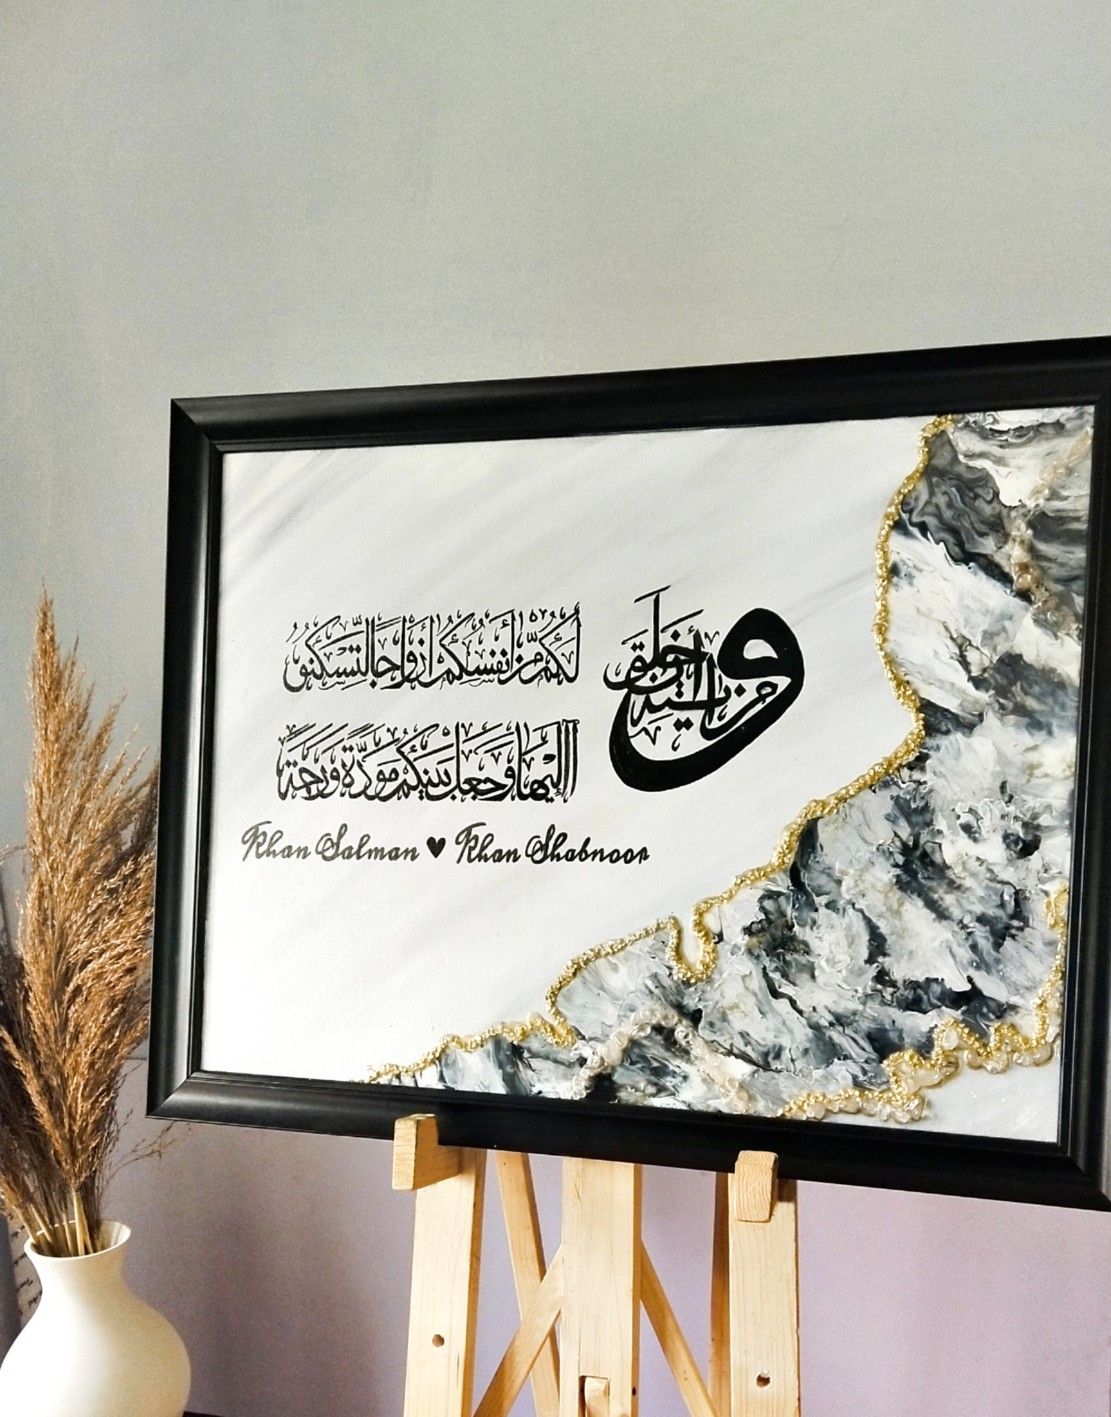 ومن آيته أن خلق
لَكُم مِّنْ أَنفُسِكُمْ أَزْوَاجًا لِّتَسْكُنُوا
إِلَيْهَا وَجَعَلَ بَيْنَكُم مَّوَدَّةً وَرَحْمَةً
Khan Salman ♥ Khan Shabnoor